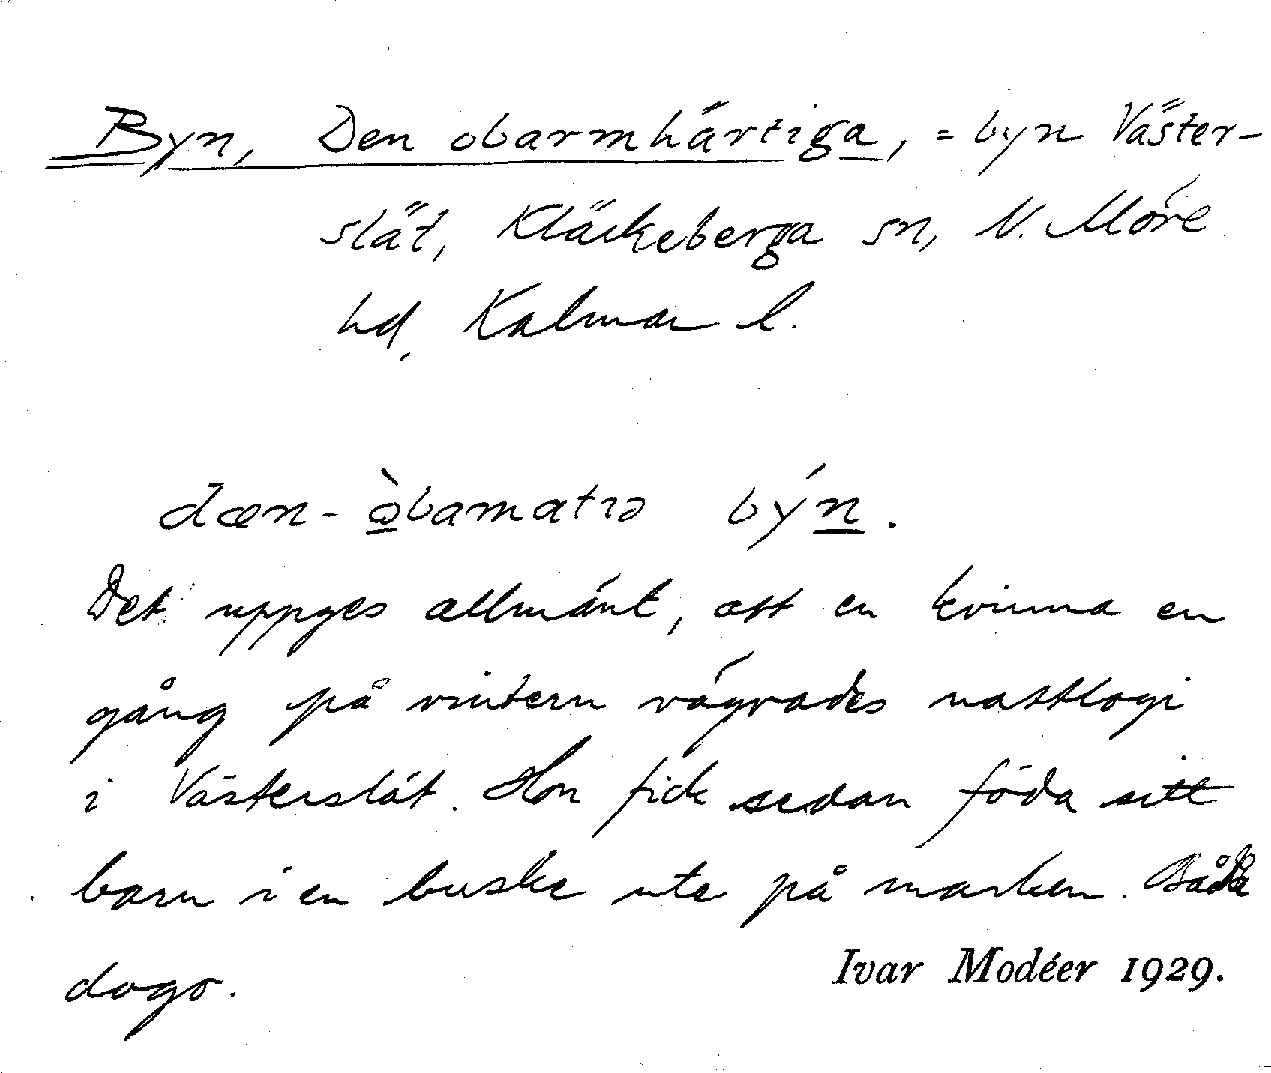 Byn, Den obarmhärtiga, = byn Väster-
slät, Kläckeberga sn, N. Möre
hd, Kalmar l.
dæn-òbamatıə býn.
Det uppges allmänt, att en kvinna en
gång på vintern vägrades nattlogi
i Västerslät. Hon fick sedan föda sitt
barn i en buske ute på marken. Båda
dogo.
Ivar Modéer 1929.